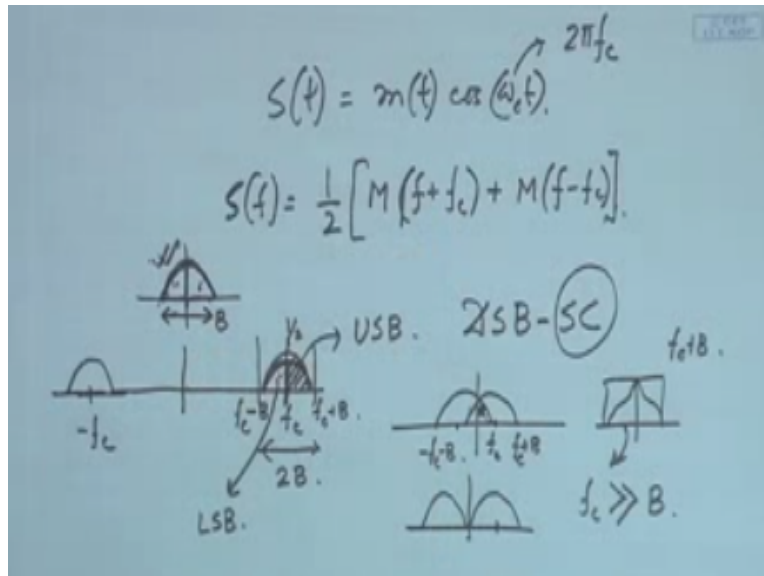 2πf_c
S(t) = m(t) cos(ω_c t).
S(f) = 1/2 [M(f+f_c) + M(f-f_c)].
B
USB.
DSB-SC
f_c+B.
-f_c
f_c-B f_c f_c+B.
2B.
LSB.
-f_c-B. f_c f_c+B
f_c >> B.